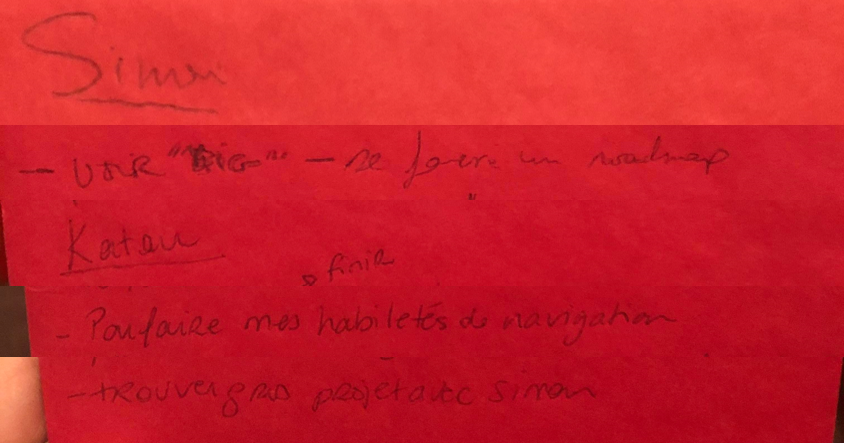 Simon
- voir "BIG" - se faire un roadmap
Katau
• finir
- Parfaire mes habiletés de navigation
- trouver gros projet avec Simon